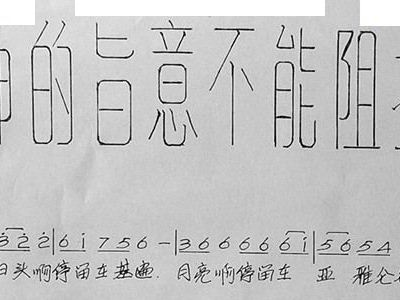 的旨意不能阻
3̇ 2̇ 2̇ | 6 1̇ 7 5 6 - | 3 6 6 6 6 6 1̇ | 5 6 5 4
日头啊停留在基遍. 月亮啊停留在 亚 雅仑